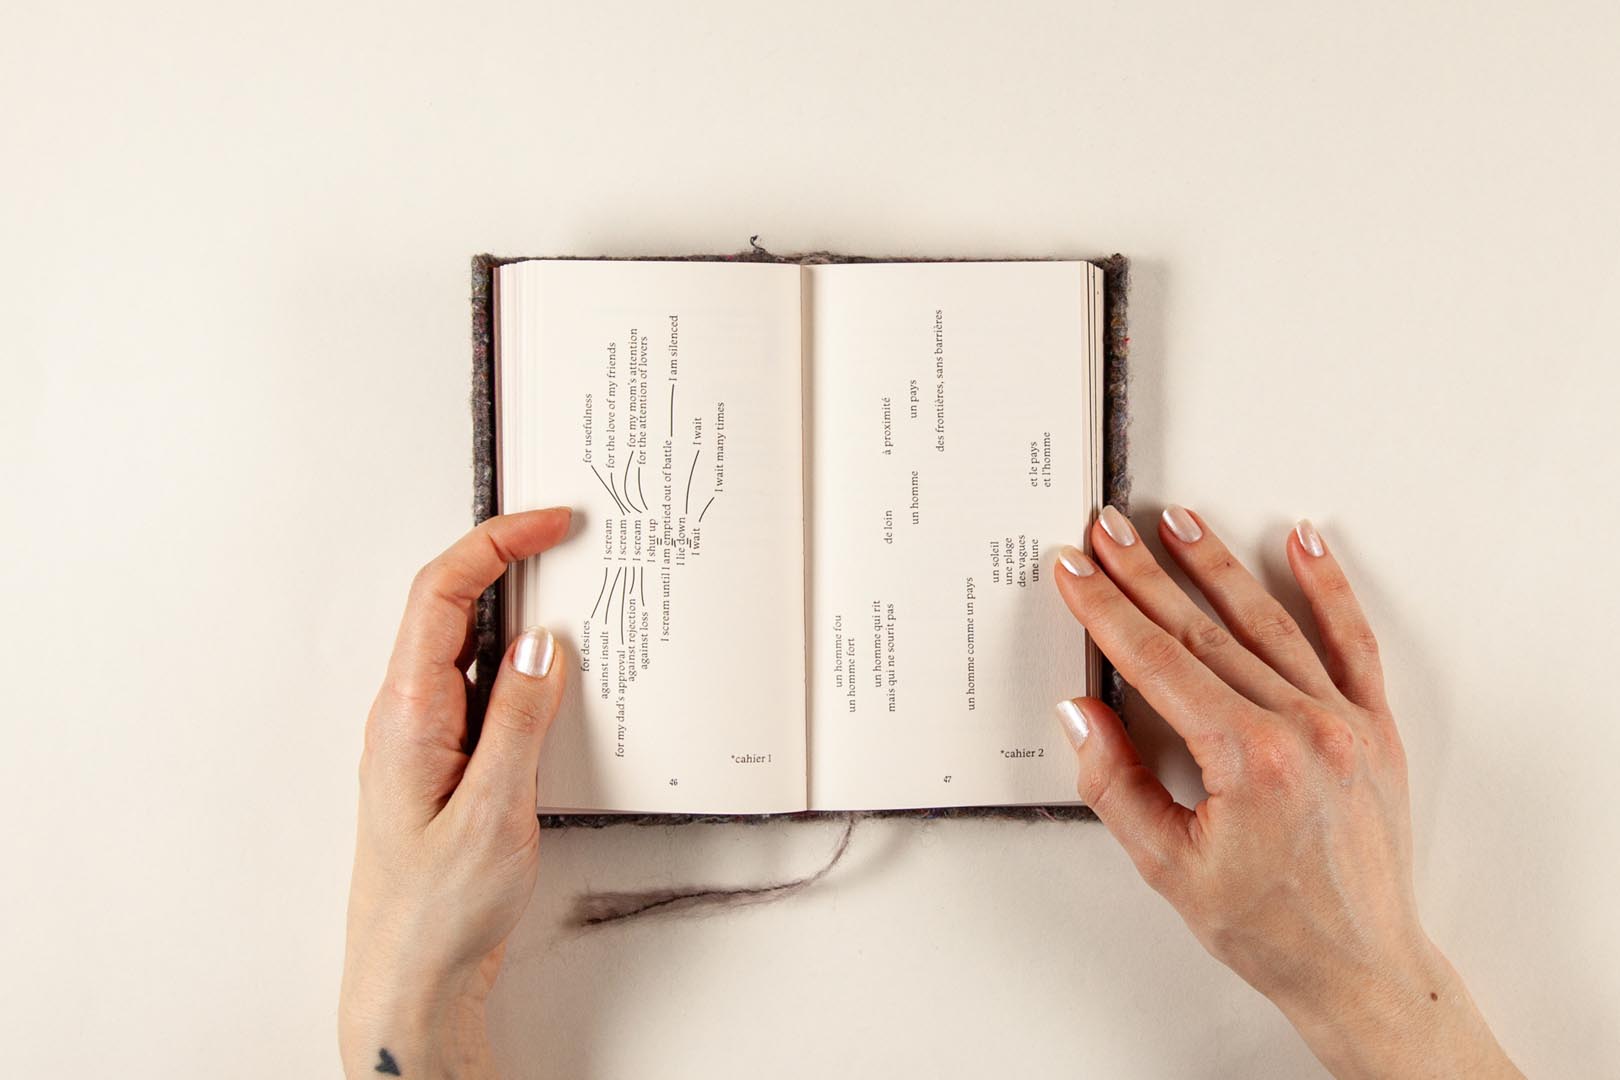 for usefulness
for the love of my friends
for my mom's attention
for the attention of lovers
I scream
I scream
I scream
I shut up
for desires
against insult
for my dad's approval
against rejection
against loss
I scream until I am emptied out of battle
I am silenced
I lie down
I wait
I wait
I wait many times
*cahier 1
46
un homme fou
un homme fort
un homme qui rit
mais qui ne sourit pas
de loin
à proximité
un homme
un pays
des frontières, sans barrières
un homme comme un pays
un soleil
une plage
des vagues
une lune
et le pays
et l'homme
*cahier 2
47